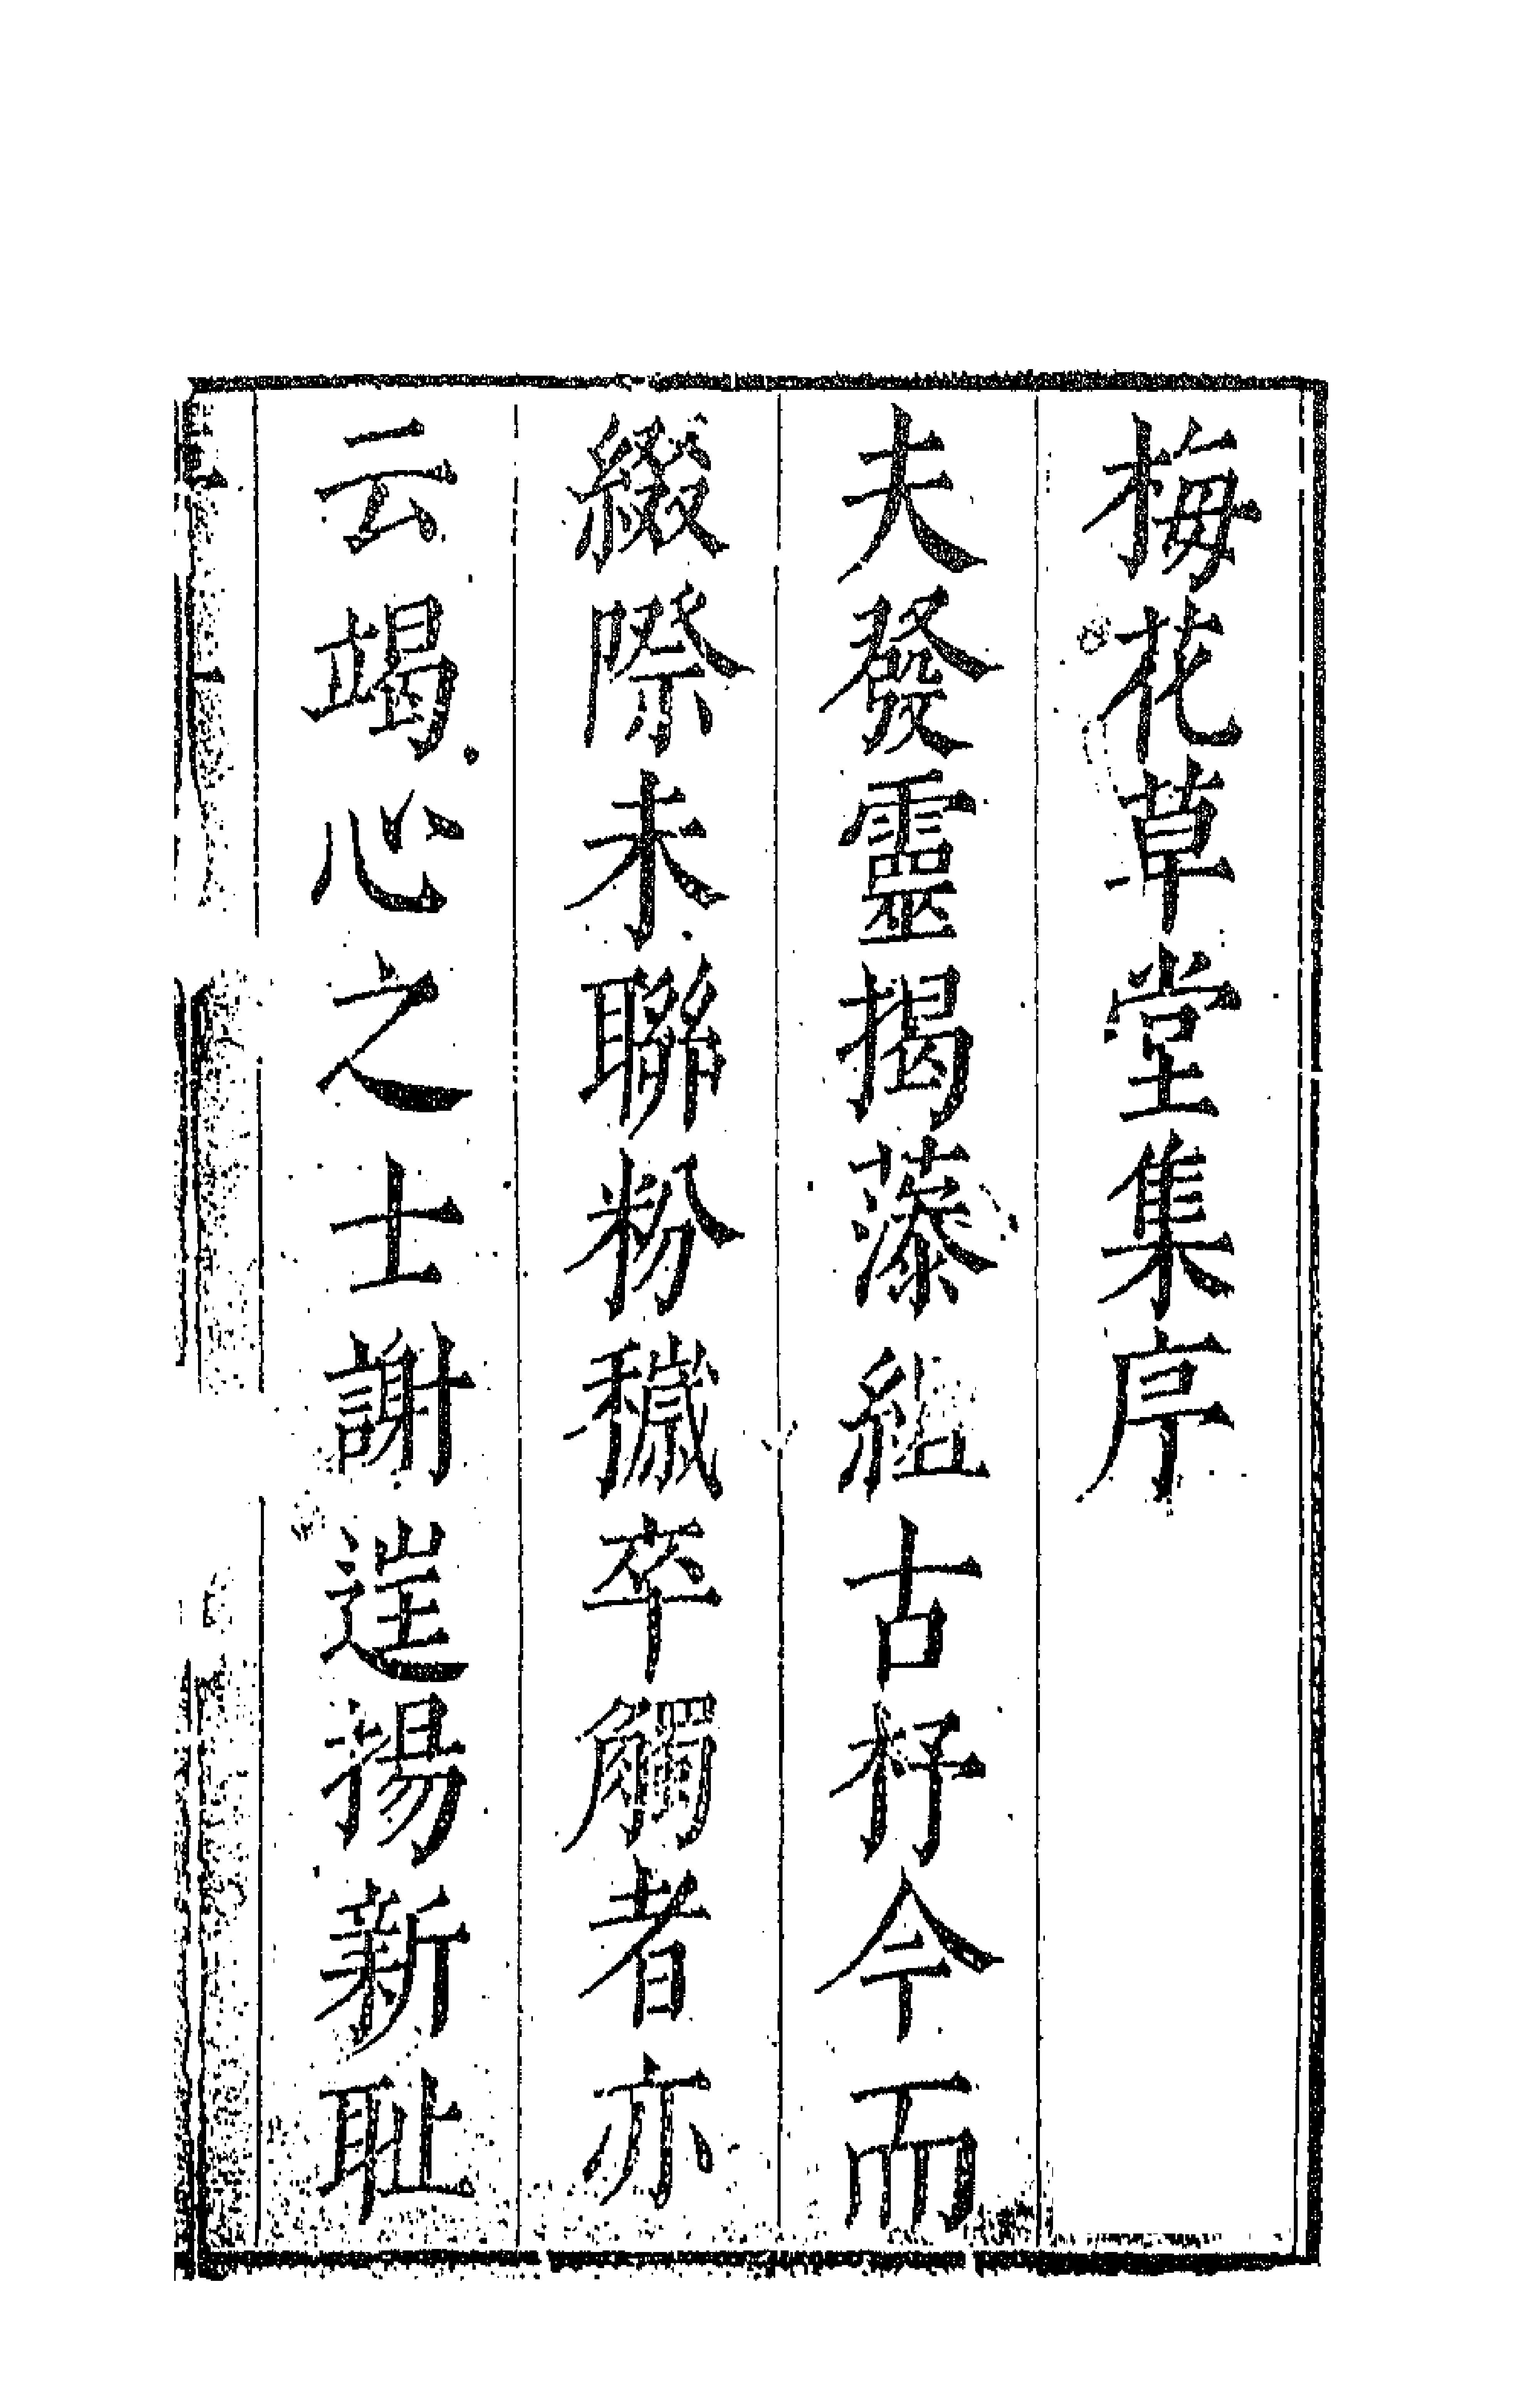 梅花草堂集序
夫發靈揭藻緼古杼今而
綴際未聯粉穢卒觸者亦
云竭心之士謝逞揚新恥